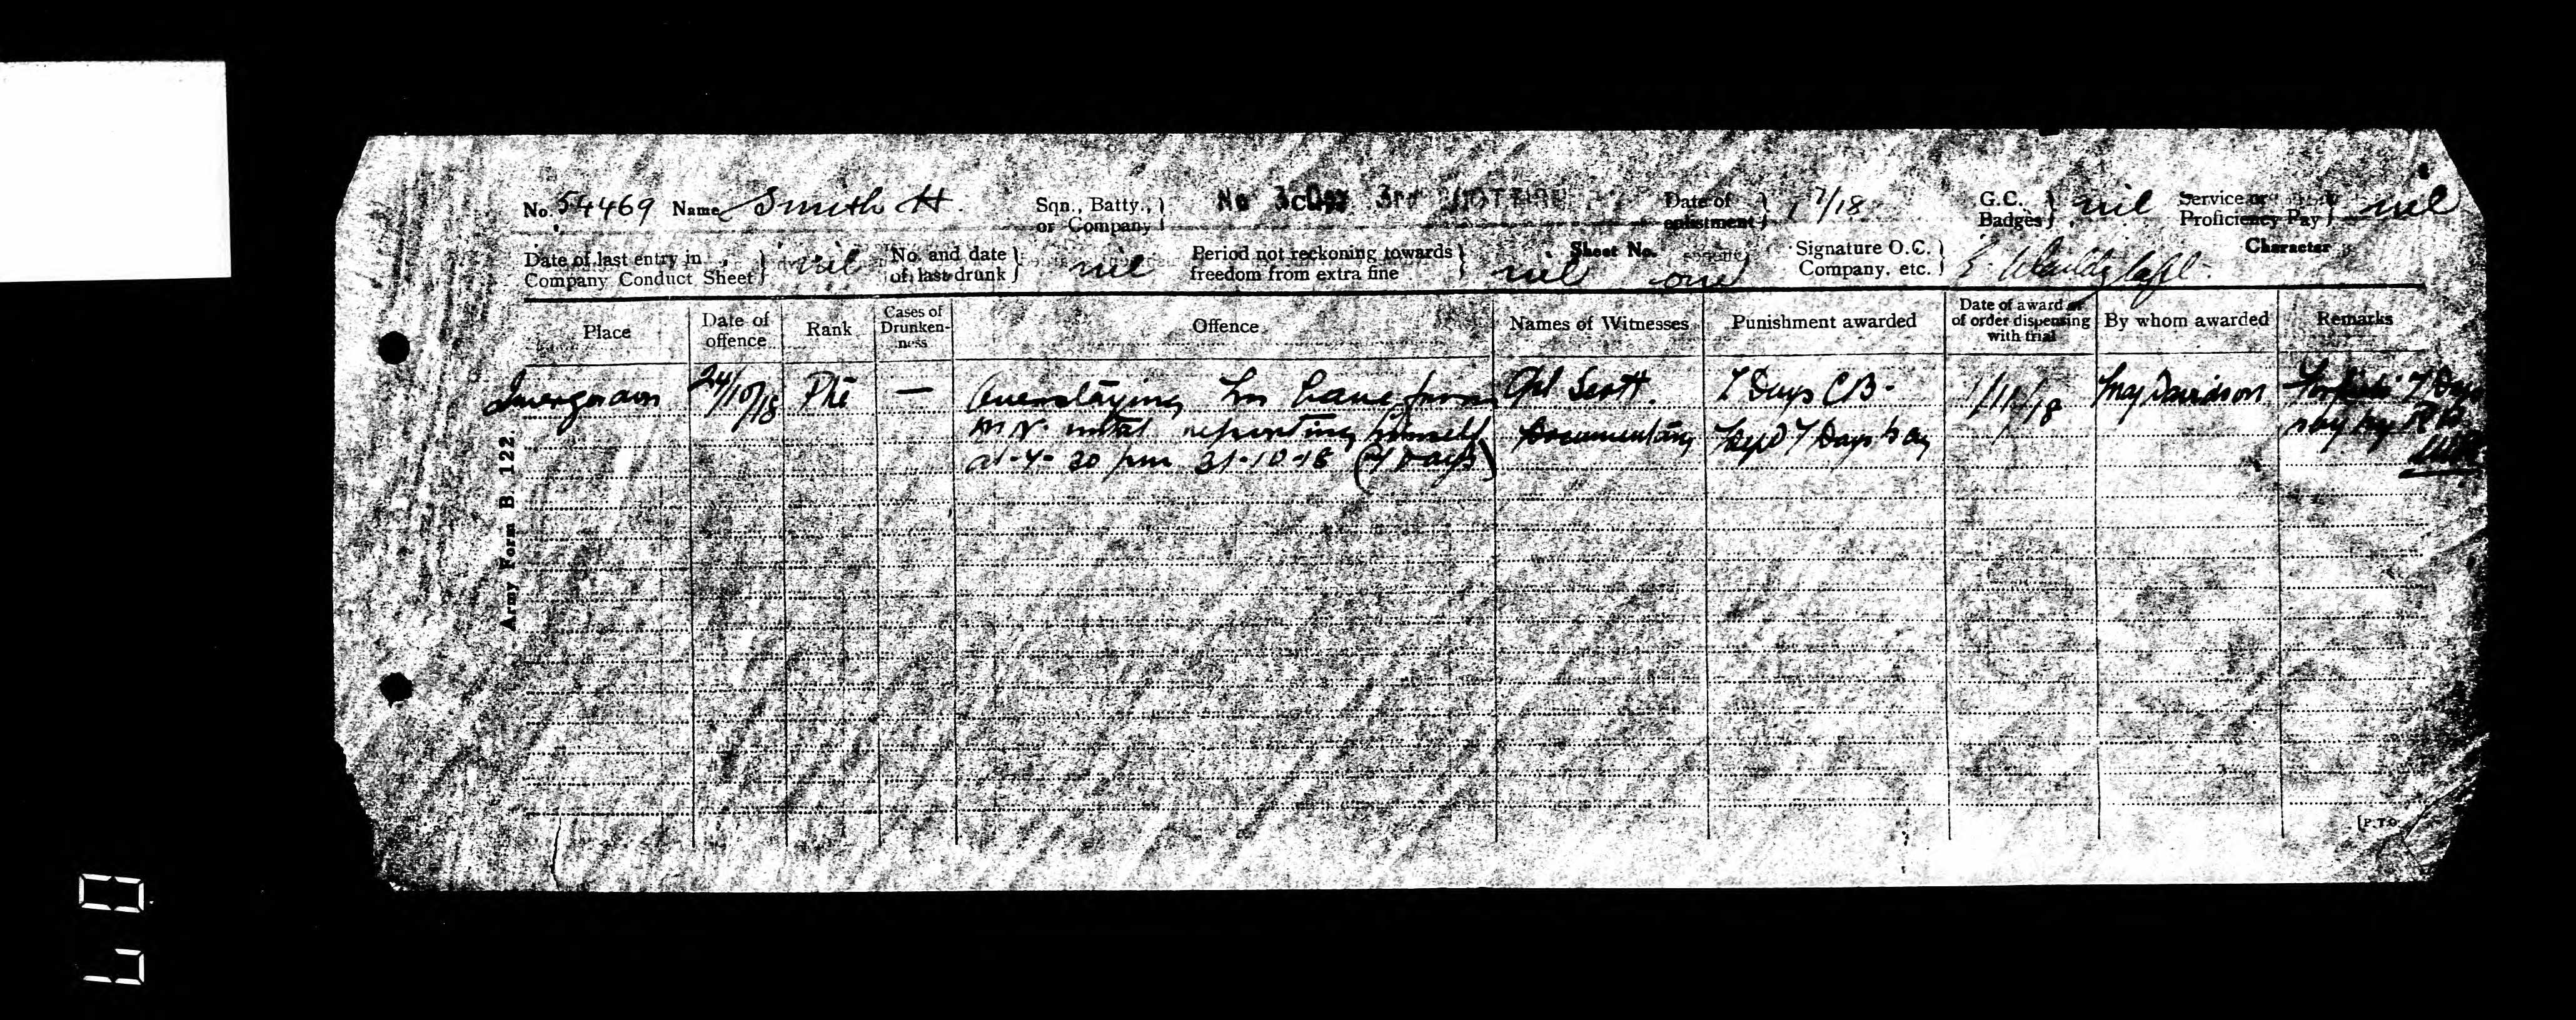 No. 54469 Name Smith H. Sqn., Batty., or Company } No 3 Coy 3rd Date of enlistment } 1/7/18 G.C. Badges } nil Service or Proficiency Pay } nil
Date of last entry in Company Conduct Sheet } nil No. and date of last drunk } nil Period not reckoning towards freedom from extra fine } nil Sheet No. one Signature O.C. Company, etc. } Capt. Character
Place Date of offence Rank Cases of Drunkenness Offence Names of Witnesses Punishment awarded Date of award or of order dispensing with trial By whom awarded Remarks
Invergordon 24/10/18 Pte — Overstaying his leave from Cpl Scott. 7 Days CB. 1/11/18 Maj Davidson Forfeits 7 Days
M.N. until reporting himself Documentary 7 Days Pay pay by R.W.
at 4-30 pm 31-10-18 (7 Days)
Army Form B 122.
[P.T.O.